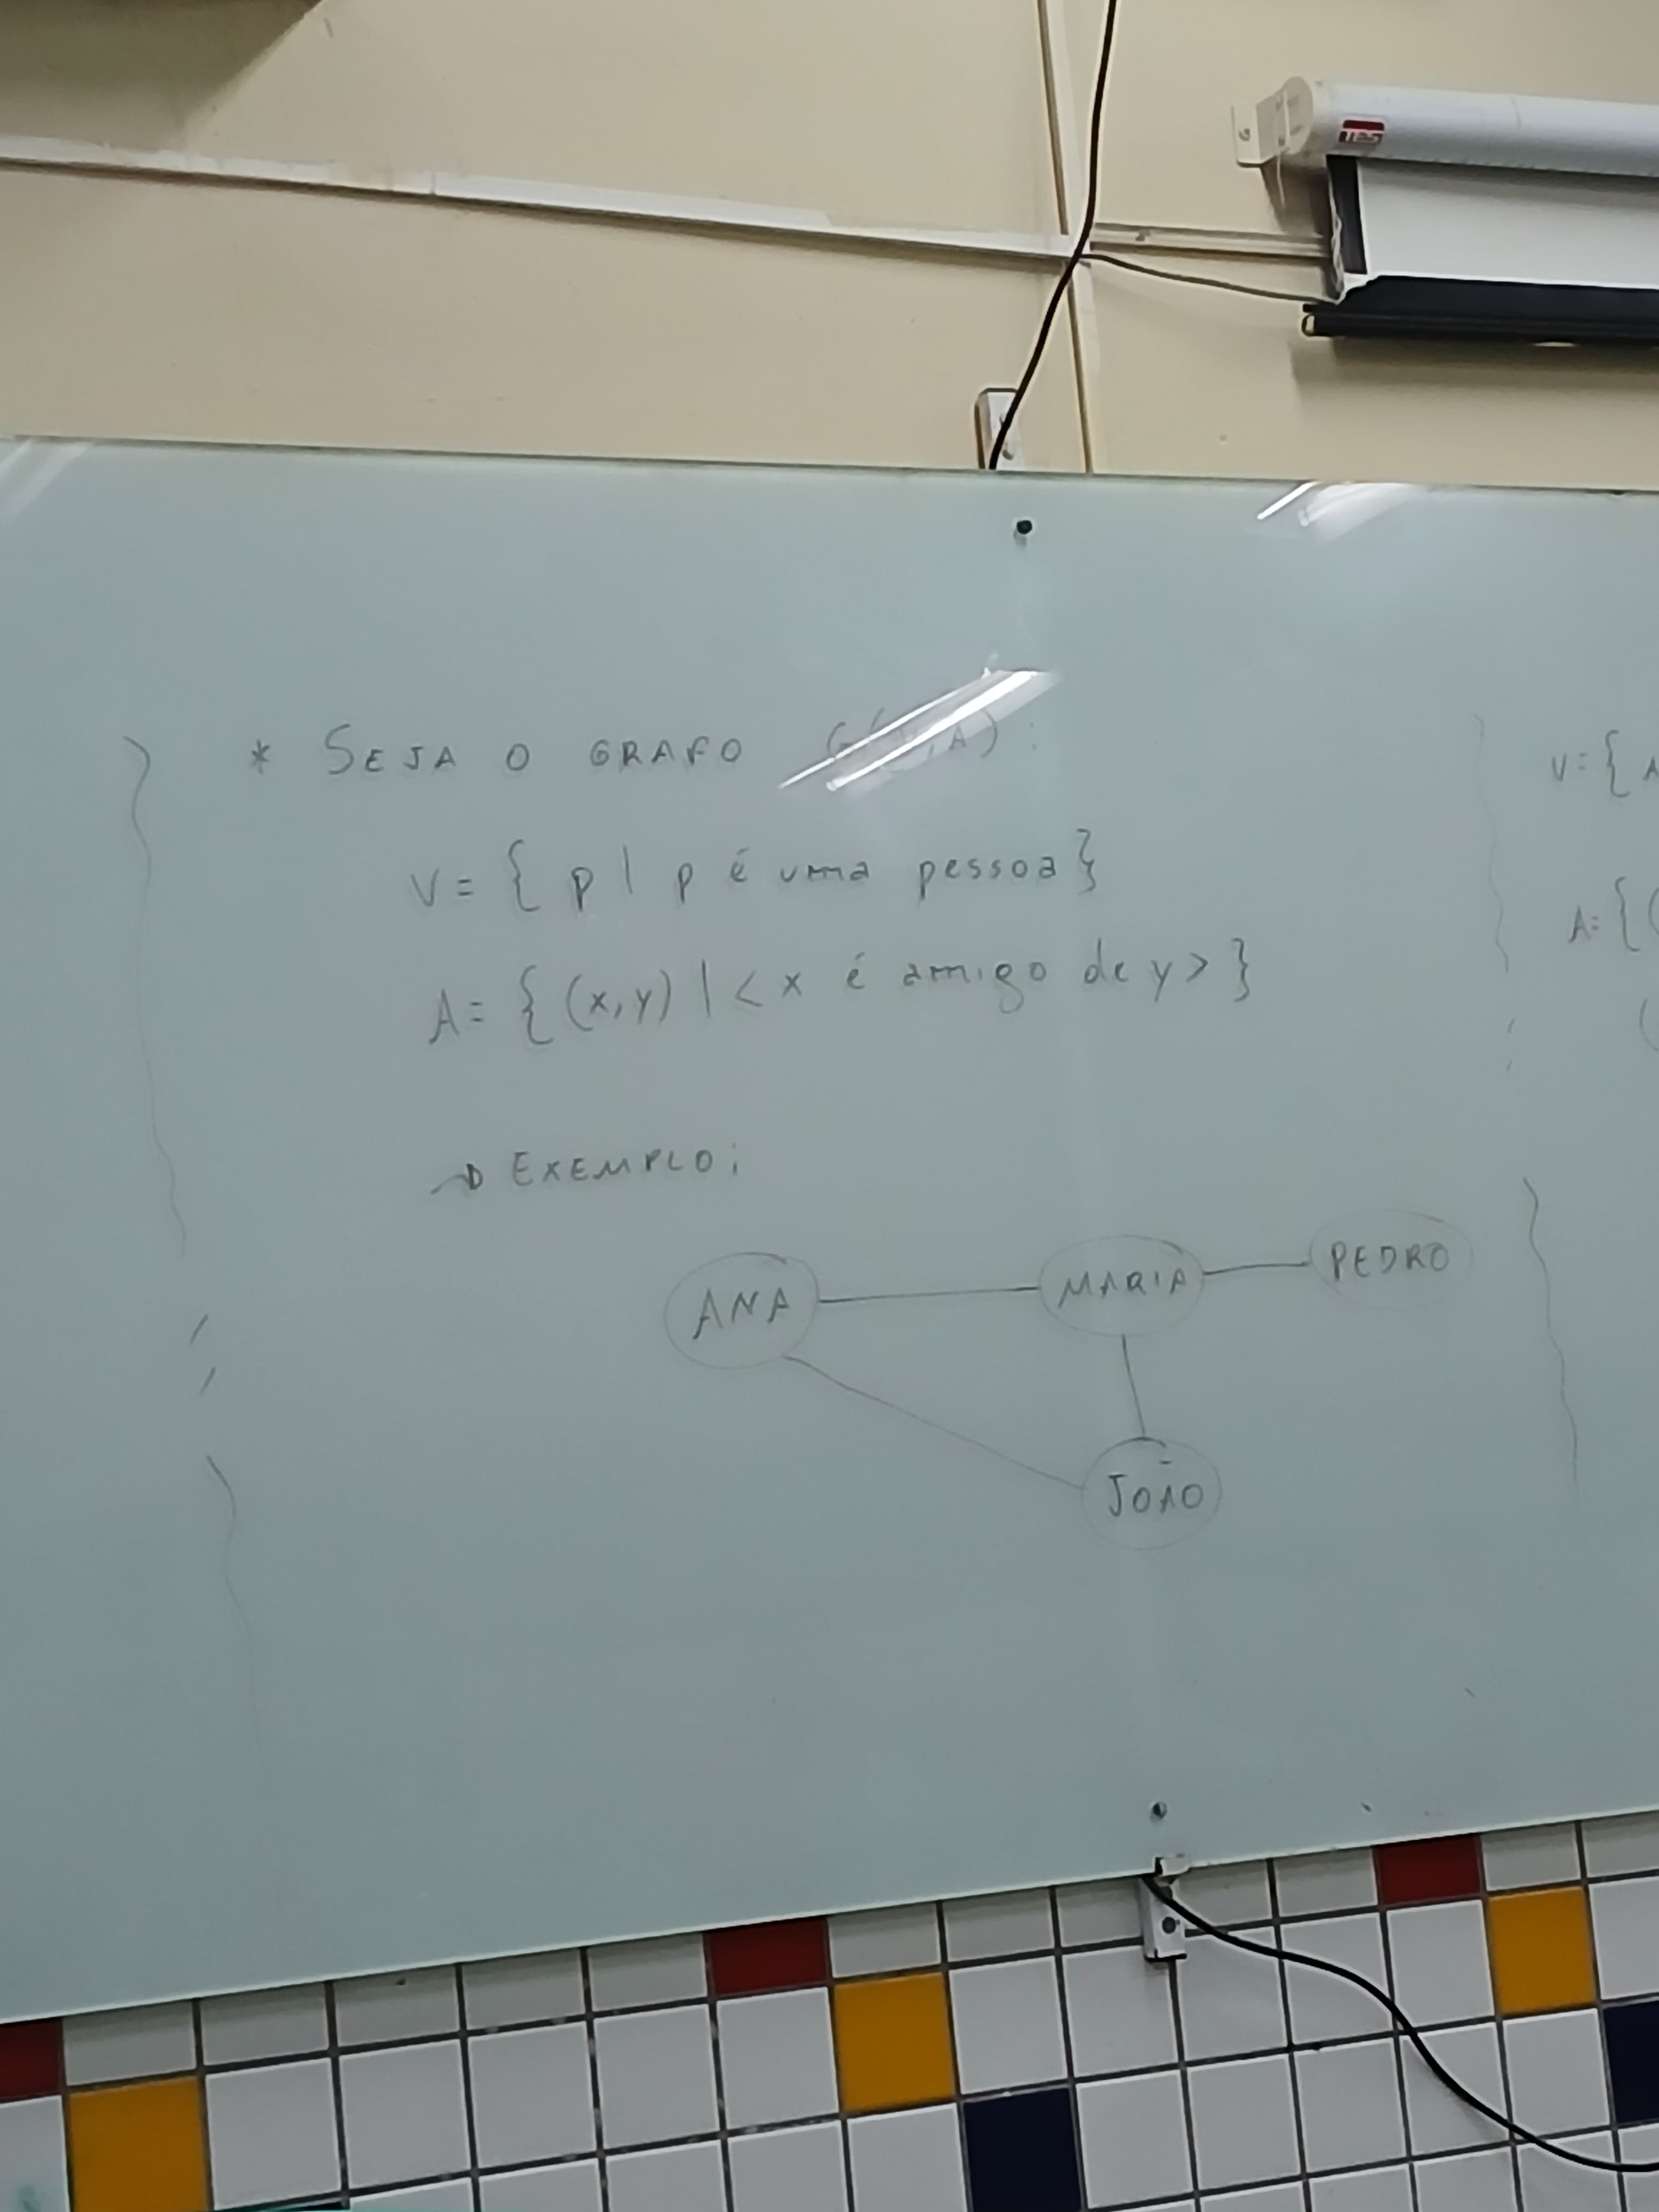 * SEJA O GRAFO G(V,A):
V={ p | p é uma pessoa}
A={(x,y) | < x é amigo de y > }
→ EXEMPLO:
ANA MARIA PEDRO
JOÃO
V={ A
A={(
(